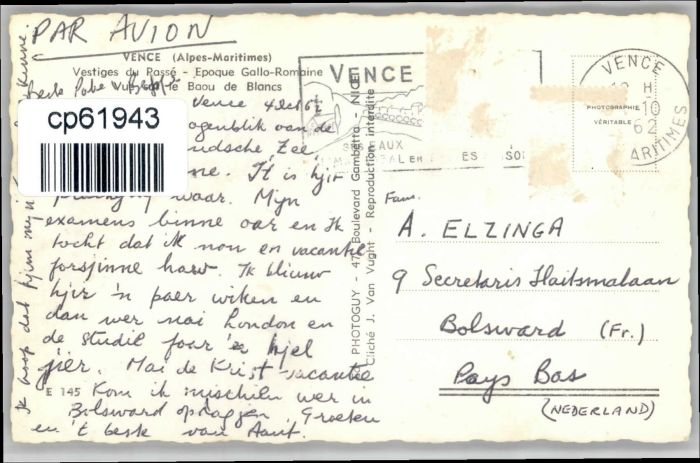 PAR AVION
VENCE (Alpes-Maritimes)
Vestiges du Passé - Epoque Gallo-Romaine
Vue le Baou de Blancs
Beste Pabe Beppe
Vence 4 62
cp61943
ogenblik van de
dsche Zee
It is hjir
waar. Mijn
examens binne oar en Ik
tocht dat ik nou en vacantie
forsjinne haw. Ik bliuw
hjir 'n paer wiken en
dan wer nai London en
de studie foar 'n hjel
jier. Mai de Krist vacantie
E 145 Kom ik misschien wer in
Bolsward opdaggen. Groeten
en 't beste van Aant.
Ik hoop dat
PHOTOGUY - 47, Boulevard Gambetta - NICE
Cliché J. Van Vught - Reproduction interdite
VENCE
VENCE
H
10
62
ARITIMES
PHOTOGRAPHIE
VÉRITABLE
Fam.
A. ELZINGA
9 Secretaris Haitsmalaan
Bolsward (Fr.)
Pays Bas
(NEDERLAND)